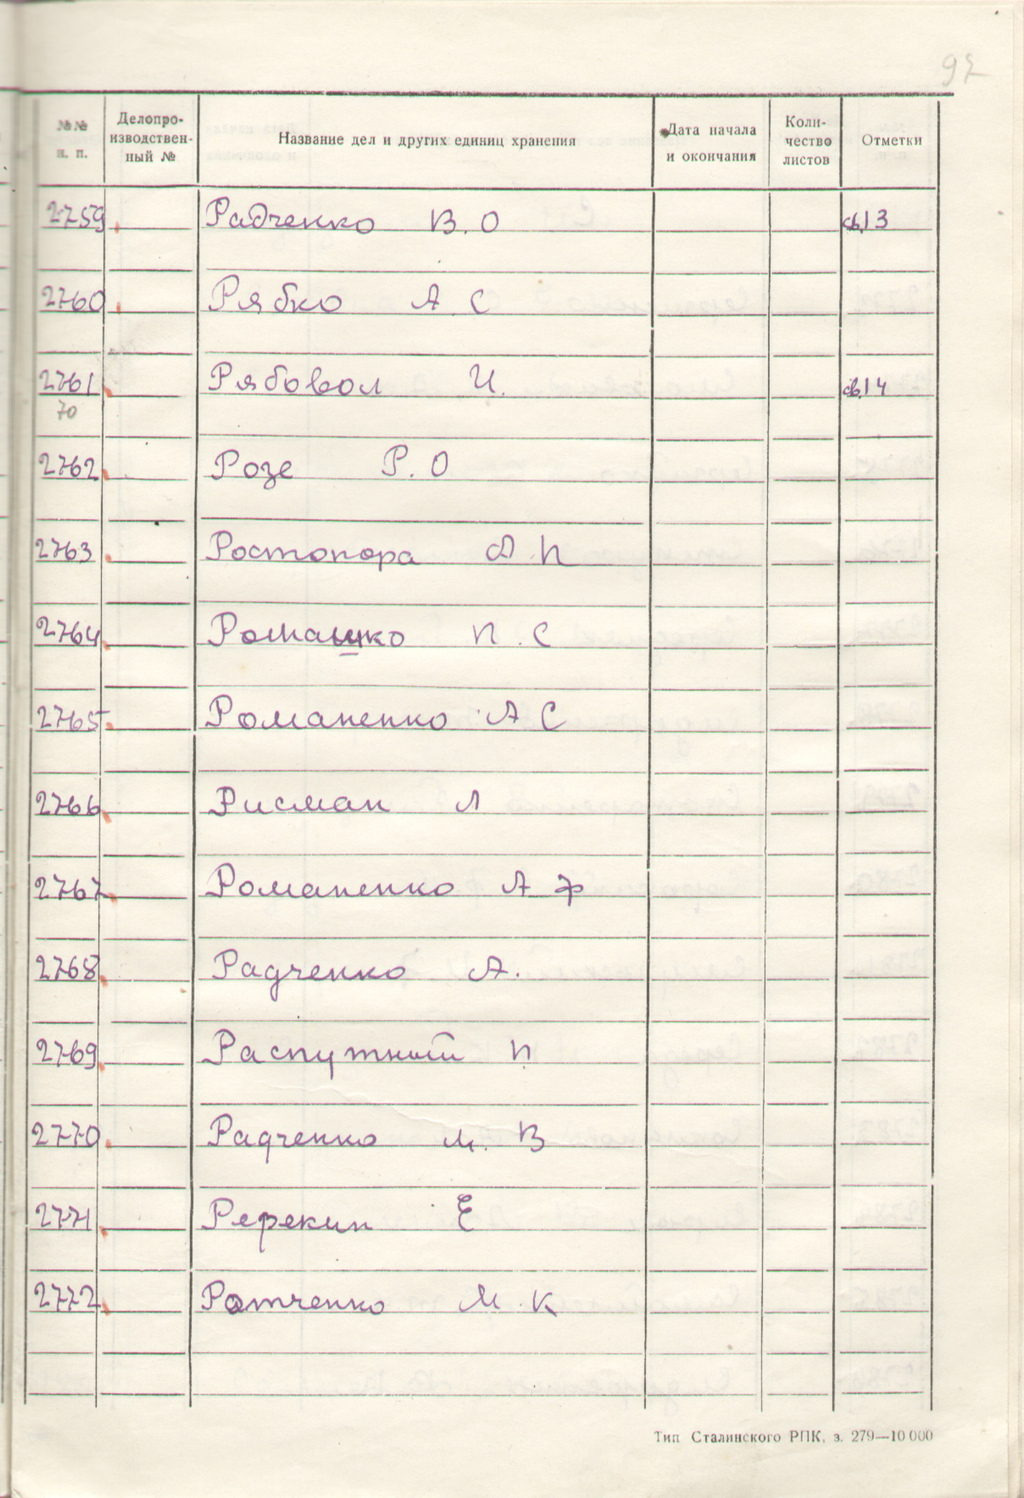 97
№№ п. п. Делопро-изводствен-ный № Название дел и других единиц хранения Дата начала и окончания Коли-чество листов Отметки
2759 Радченко В.О св.13
2760 Рябко А.С
2761 Рябовол И. св.14
70
2762 Розе Р.О
2763 Ростопора Ф П
2764 Ромашко П.С
2765 Романенко А С
2766 Рисман Л
2767 Романенко А Ф
2768 Радченко А.
2769 Распутный П
2770 Радченко М. В
2771 Ререкин Е
2772 Ратченко М.К
Тип Сталинского РПК, з. 279—10 000